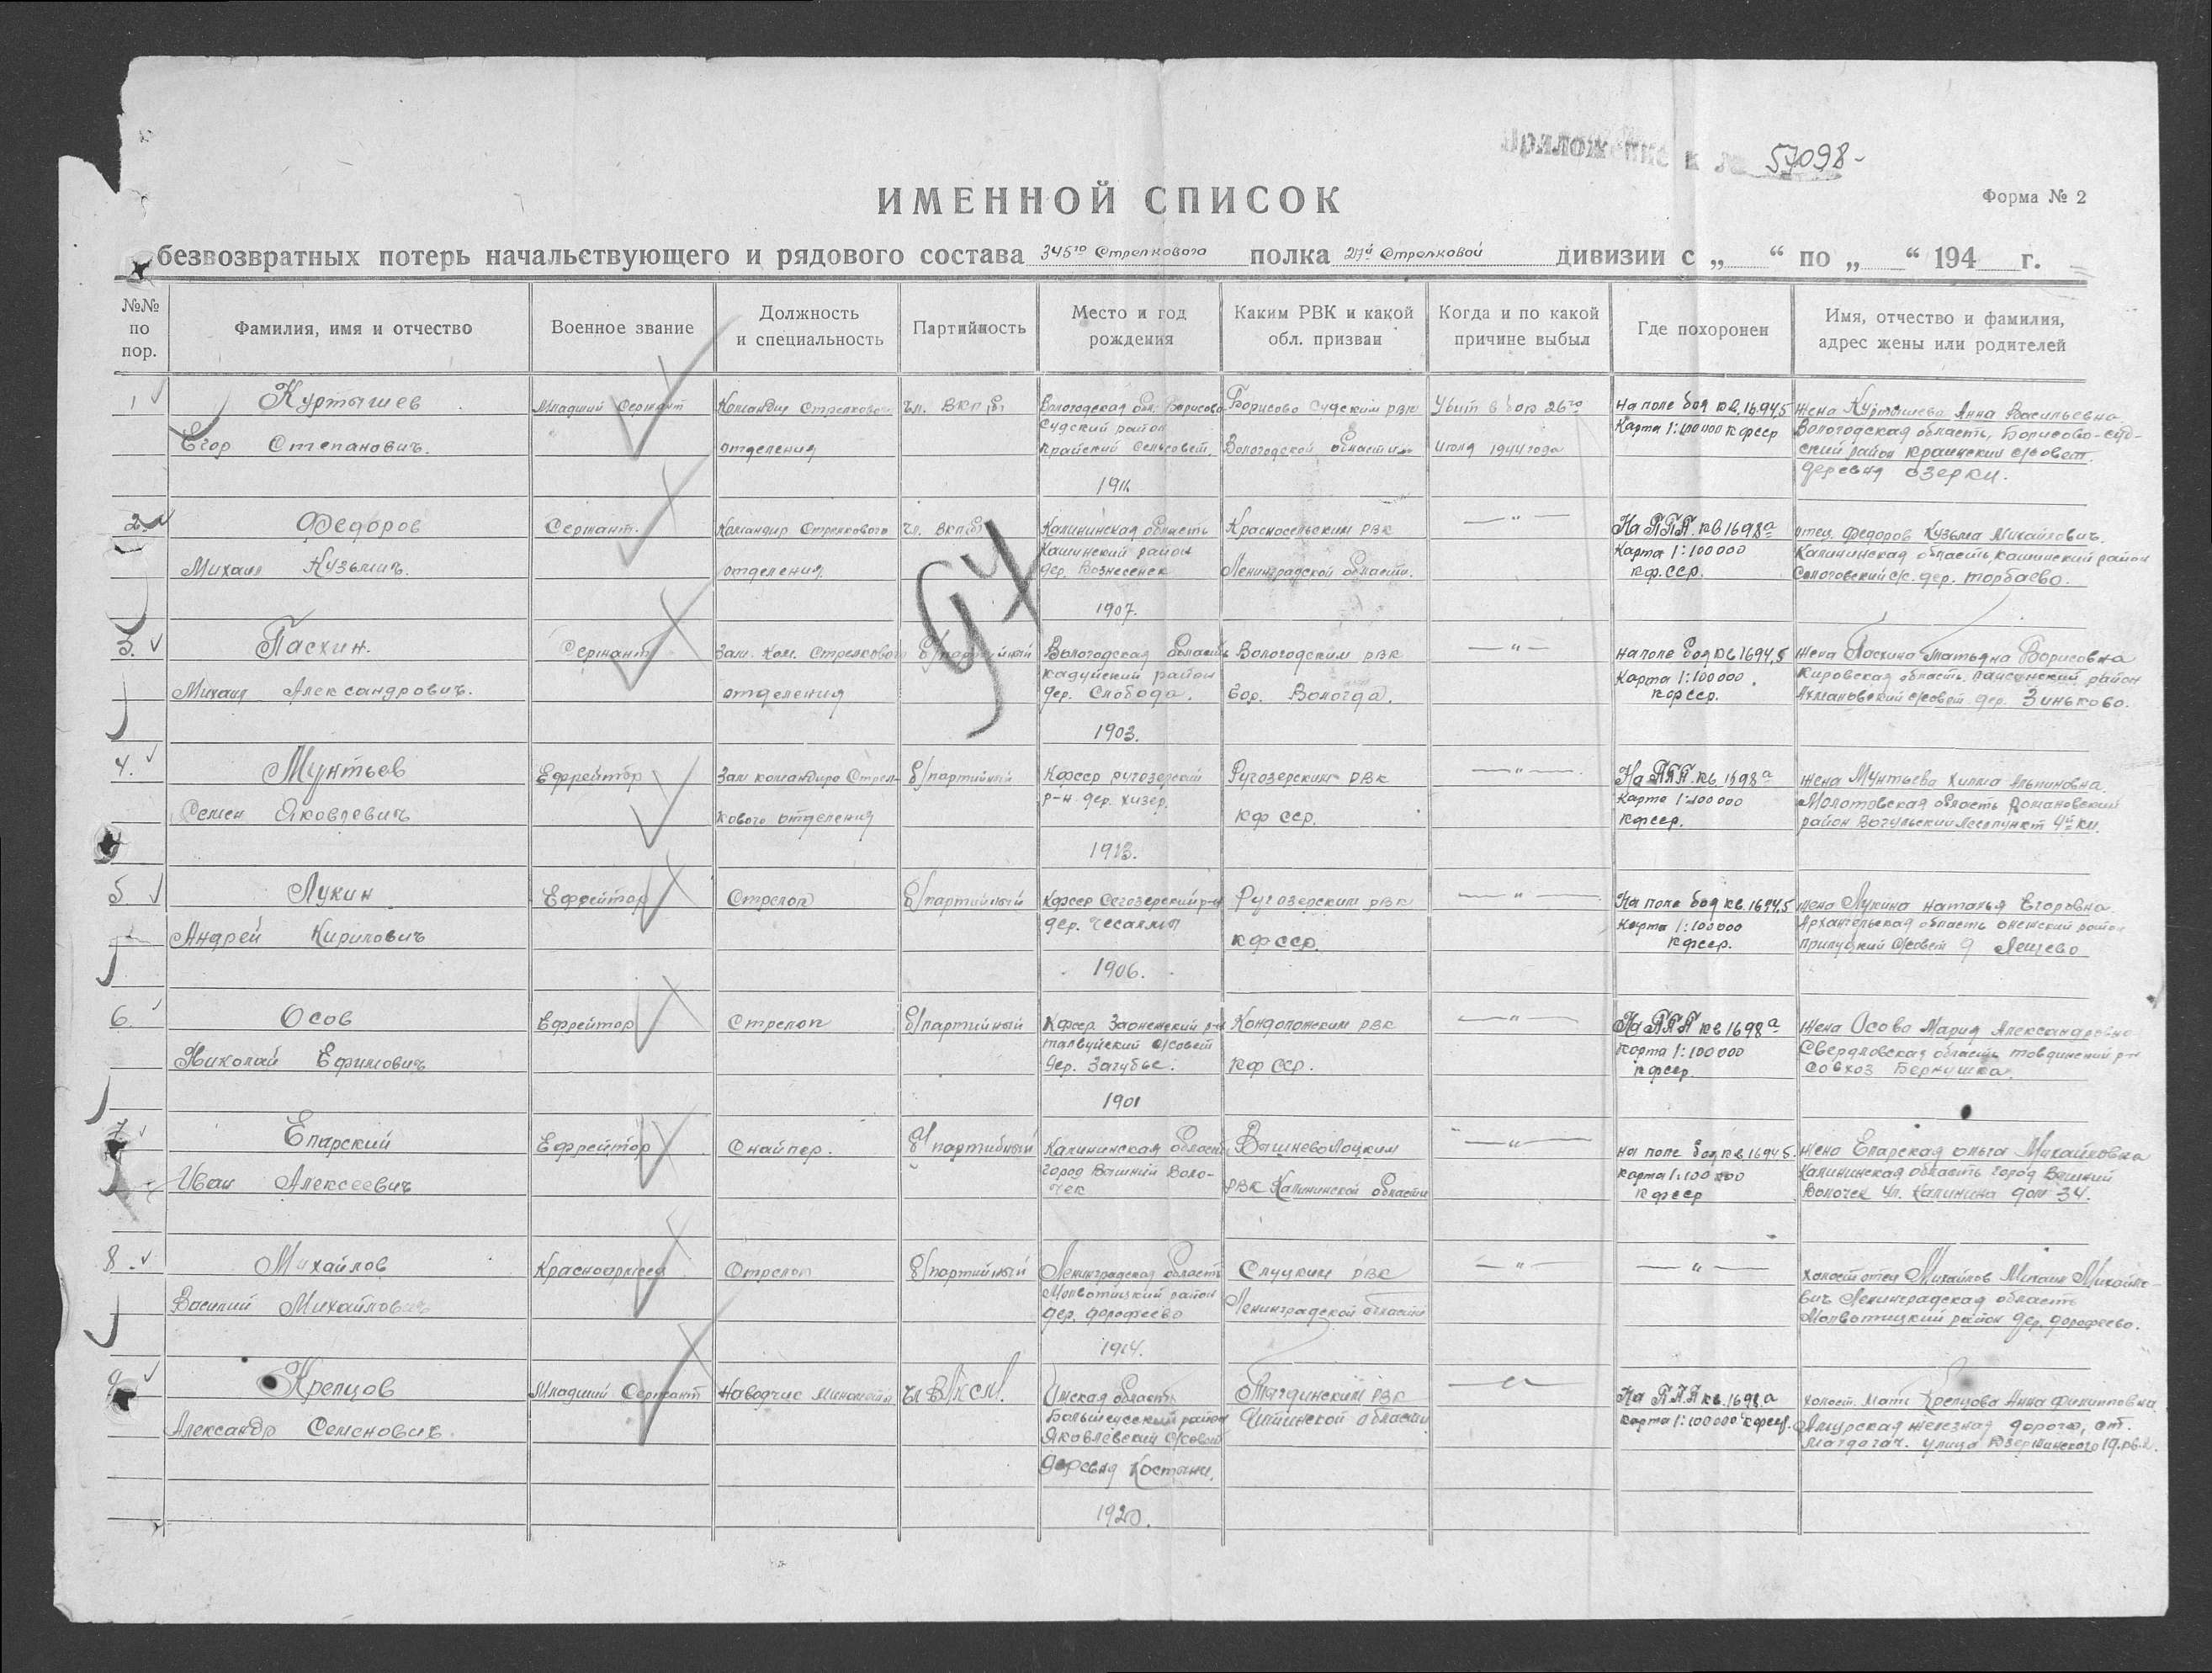 Приложение к № 57098-
ИМЕННОЙ СПИСОК
Форма № 2
безвозвратных потерь начальствующего и рядового состава 345го Стрелкового полка 27й Стрелковой дивизии с „ “ по „ “ 194 г.
№№ по пор.
Фамилия, имя и отчество
Военное звание
Должность и специальность
Партийность
Место и год рождения
Каким РВК и какой обл. призван
Когда и по какой причине выбыл
Где похоронен
Имя, отчество и фамилия, адрес жены или родителей
1
Куртышев
Егор Степанович.
Младший Сержант
Командир Стрелкового
отделения
чл. ВКП(б)
Вологодская обл. Борисово-
Судский район
Крайский Сельсовет.
Борисово Судским РВК
Вологодской области
Убит в бою 26го
Июля 1944 года
На поле боя кв. 1694,5
Карта 1:100000 КФССР
Жена Куртышева Анна Васильевна
Вологодская область, Борисово-Суд-
ский район Крайский с/совет.
деревня Озерки.
2.
Федоров
Михаил Кузьмич.
Сержант.
Командир Стрелкового
отделения.
чл. ВКП(б)
Калининская область
Кашинский район
дер. Вознесенск
1907.
Красносельским РВК
Ленинградской области.
—"—
На ППП. кв 1698а
Карта 1:100000
КФ.ССР.
отец Федоров Кузьма Михайлович.
Калининская область, Кашинский район
с/с. дер. Торбаево.
94
3.
Пасхин.
Михаил Александрович.
Сержант
Зам. Ком. Стрелкового
отделения
б/партийный
Вологодская область
Кадуйский район
дер. Слобода.
1903.
Вологодским РВК
Гор. Вологда.
—"—
на поле боя кв 1694,5
Карта 1:100000.
КФССР.
Жена Пасхина Татьяна Борисовна
Кировская область, район
с/совет дер. Зиньково.
4.
Мунтьев
Семен Яковлевич
Ефрейтор
Зам командира Стрел-
кового отделения
б/партийный
КФССР Ругозерский
р-н дер. Хизер.
1913.
Ругозерским РВК
КФ ССР.
—"—
На ППП. кв. 1698а
Карта 1:100000
КФССР.
жена Мунтьева Хилма
Молотовская область
район Вогульский Лесопункт 4й км.
5.
Лукин
Андрей Кирилович
Ефрейтор
Стрелок
б/партийный
КФССР Сегозерский р-н
дер. Чесалмы
1906.
Ругозерским РВК
КФССР.
—"—
На поле боя кв. 1694,5
Карта 1:100000
КФССР.
жена Лукина Наталья Егоровна
Архангельская область Онежский район
Прилуцкий с/совет д Лещево
6.
Осов
Николай Ефимович
Ефрейтор
Стрелок
б/партийный
КФССР Заонежский р-н
Толвуйский с/совет
дер. Загубье.
1901
Кондопожским РВК
КФ ССР.
—"—
На ППП кв 1698а
Карта 1:100000
КФССР.
жена Осова Мария Александровна
Свердловская область Товдинский р-н
совхоз Бернушка.
7.
Епарский
Иван Алексеевич
Ефрейтор
Снайпер.
б/партийный
Калининская область
город Вышний Воло-
чек
Вышневолоцким
РВК Калининской области
—"—
на поле боя кв. 1694,5.
Карта 1:100000
КФССР
жена Епарская Ольга Михайловна
Калининская область город Вышний
Волочек ул. Калинина дом 34.
8.
Михайлов
Василий Михайлович
Красноармеец
Стрелок
б/партийный
Ленинградская область
Молвотицкий район
дер. Дорофеево
1914.
Слуцким РВК
Ленинградской области
—"—
—"—
холост отец Михайлов Михаил Михайло-
вич Ленинградская область
Молвотицкий район дер. Дорофеево.
9
Крепцов
Александр Семенович.
Младший Сержант
Наводчик Миномета
чл ВЛКСМ.
Омская область
Большеусский район
Яковлевский с/совет
деревня Костыни.
1920.
Тыгдинским РВК
Читинской области
—"—
На ППП кв. 1698а
Карта 1:100000 КФССР.
холост. мать Крепцова Анна Филипповна
Амурская железная дорога, ст.
Магдагач. улица Дзержинского 19.кв.2.